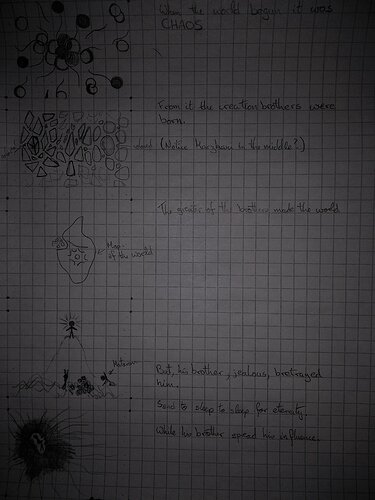 When the world began it was
CHAOS
From it the creation brothers were
born.
(Notice in the middle?)
The greater of the brothers made the world
Map
of the world
But, his brother, jealous, bretrayed
him.
Send to sleep to sleep for eternity.
While his brother spread his influence.